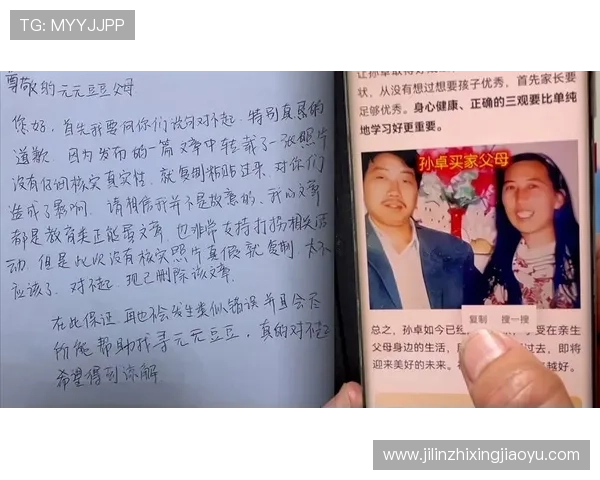 TG: MYYJJPP
尊敬的元元豆豆父母
您好,首先我要向你们说句对不起,特别真恳的
道歉,因为发布的一篇文章中转载了一张照片
没有仔细核实真实性,就复制粘贴过来,对你们
造成了影响,请相信我并不是故意的,我的文章
都是教育类正能量文章,也非常支持打拐相关活
动,但是此次没有核实照片真假就复制,太不
应该了,对不起,现已删除该文章,
在此保证,再也不会发生类似错误并且会尽
所能帮助找寻元元豆豆,真的对不起
希望得到谅解
让孙卓取得好成
状,从没有想过要孩子优秀,首先家长要
足够优秀。身心健康、正确的三观要比单纯
地学习好更重要。
孙卓买家父母
复制 搜一搜
总之,孙卓如今已经 受在亲生
父母身边的生活, 过去,即将
迎来美好的未来。 越好。
www.jilinzhixingjiaoyu.com